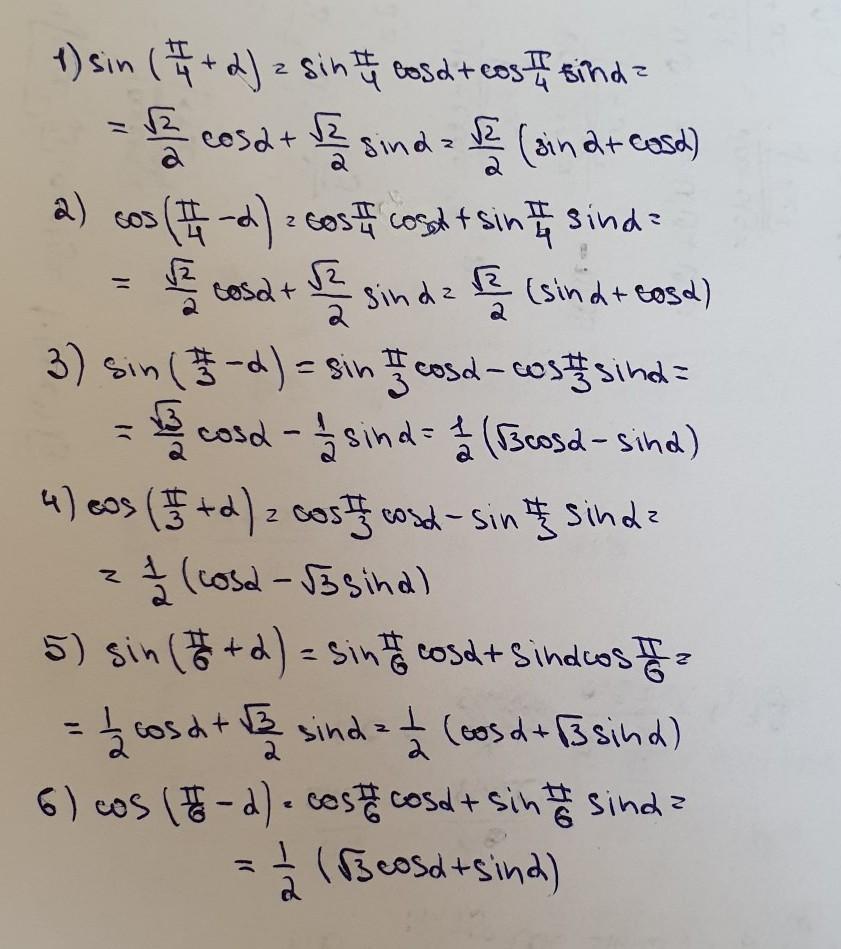 1) sin (π/4 + α) = sin π/4 cosα + cos π/4 sinα =
= √2/2 cosα + √2/2 sinα = √2/2 (sinα + cosα)
2) cos(π/4 - α) = cos π/4 cosα + sin π/4 sinα =
= √2/2 cosα + √2/2 sinα = √2/2 (sinα + cosα)
3) sin (π/3 - α) = sin π/3 cosα - cos π/3 sinα =
= √3/2 cosα - 1/2 sinα = 1/2 (√3cosα - sinα)
4) cos (π/3 + α) = cos π/3 cosα - sin π/3 sinα =
= 1/2 (cosα - √3 sinα)
5) sin (π/6 + α) = sin π/6 cosα + sinα cos π/6 =
= 1/2 cosα + √3/2 sinα = 1/2 (cosα + √3 sinα)
6) cos (π/6 - α) = cos π/6 cosα + sin π/6 sinα =
= 1/2 (√3cosα + sinα)